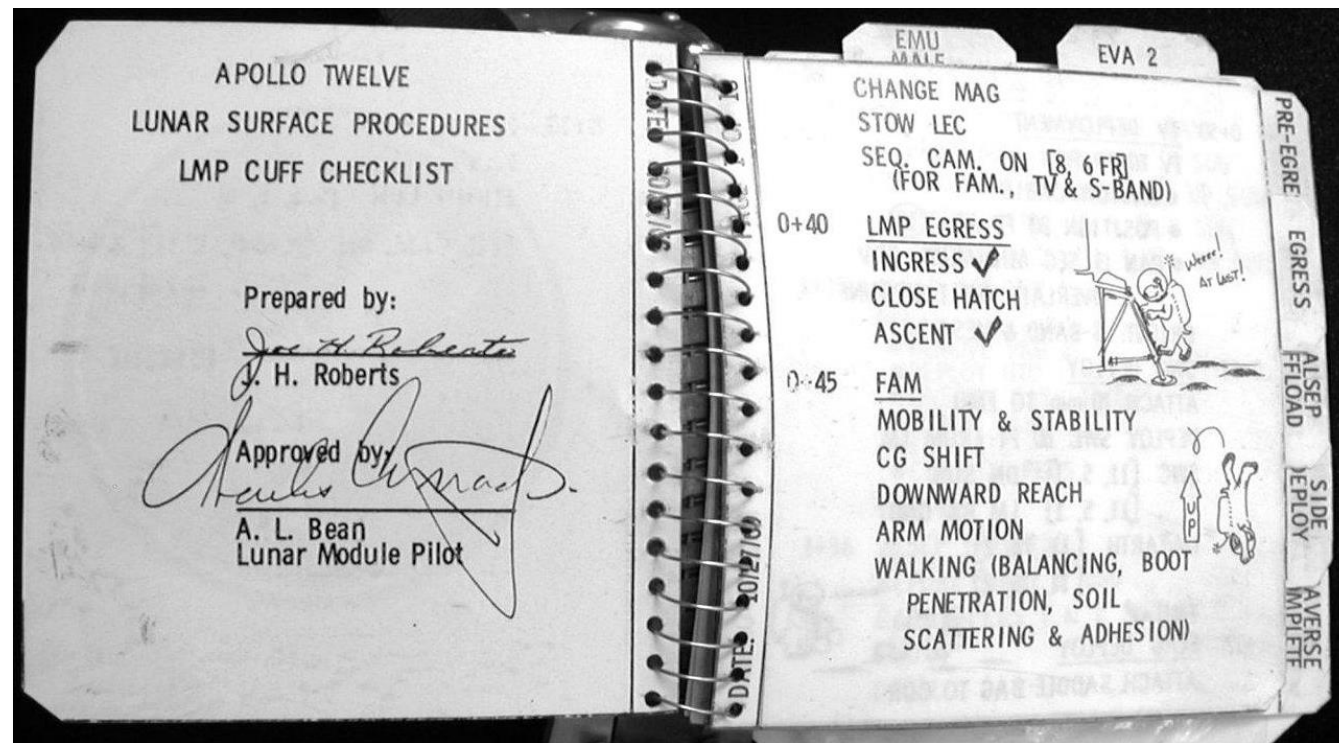 APOLLO TWELVE
LUNAR SURFACE PROCEDURES
LMP CUFF CHECKLIST
Prepared by:
Joe H. Roberts
J. H. Roberts
Approved by:
Charles Conrad Jr.
A. L. Bean
Lunar Module Pilot
DATE: 10/27/69
EMU
EVA 2
CHANGE MAG
STOW LEC
SEQ. CAM. ON [8, 6 FR]
(FOR FAM., TV & S-BAND)
0+40 LMP EGRESS
INGRESS ✓
CLOSE HATCH
ASCENT ✓
Weeee!
AT LAST!
0+45 FAM
MOBILITY & STABILITY
CG SHIFT
DOWNWARD REACH
ARM MOTION
UP
WALKING (BALANCING, BOOT
PENETRATION, SOIL
SCATTERING & ADHESION)
PRE-EGRE
EGRESS
ALSEP
FFLOAD
SIDE
DEPLOY
AVERSE
IMPLETE